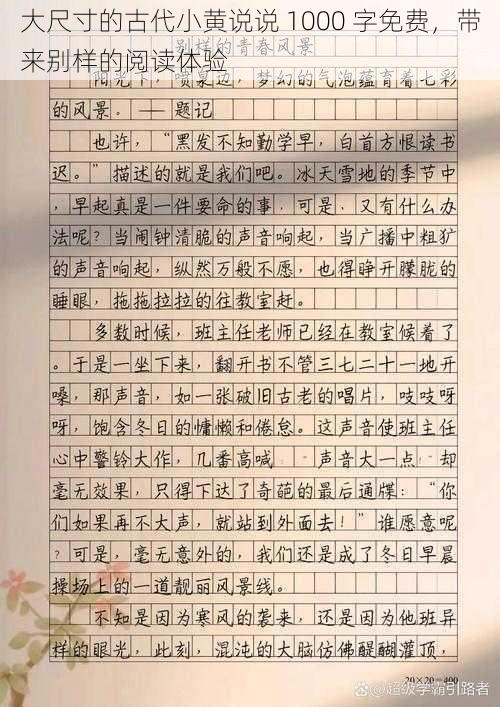 大尺寸的古代小黄说说 1000 字免费，带
来别样的阅读体验
别样的青春风景
阳光下，喷泉边，梦幻的气泡蕴育着七彩
的风景。——题记
也许，“黑发不知勤学早，白首方恨读书
迟。”描述的就是我们吧。冰天雪地的季节中
，早起真是一件要命的事，可是，又有什么办
法呢？当闹钟清脆的声音响起，当广播中粗犷
的声音响起，纵然万般不愿，也得睁开朦胧的
睡眼，拖拖拉拉的往教室赶。
多数时候，班主任老师已经在教室候着了
。于是一坐下来，翻开书不管三七二十一地开
嗓，那声音，如一张破旧古老的唱片，吱吱呀
呀，饱含冬日的慵懒和倦怠。这声音使班主任
心中警铃大作，几番高喊 声音大一点 却
毫无效果，只得下达了奇葩的最后通牒：“你
们如果再不大声，就站到外面去！”谁愿意呢
？可是，毫无意外的，我们还是成了冬日早晨
操场上的一道靓丽风景线。
不知是因为寒风的袭来，还是因为他班异
样的眼光，此刻，混沌的大脑仿佛醍醐灌顶，
20×20=400
@超级学霸引路者